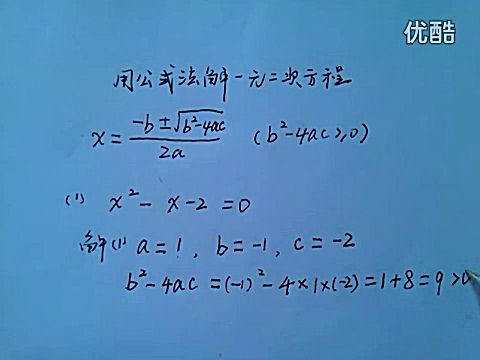 优酷
用公式法解一元二次方程
x = (-b ± √(b²-4ac)) / 2a (b²-4ac ≥ 0)
(1) x² - x - 2 = 0
解(1) a = 1, b = -1, c = -2
b² - 4ac = (-1)² - 4×1×(-2) = 1+8 = 9 > 0